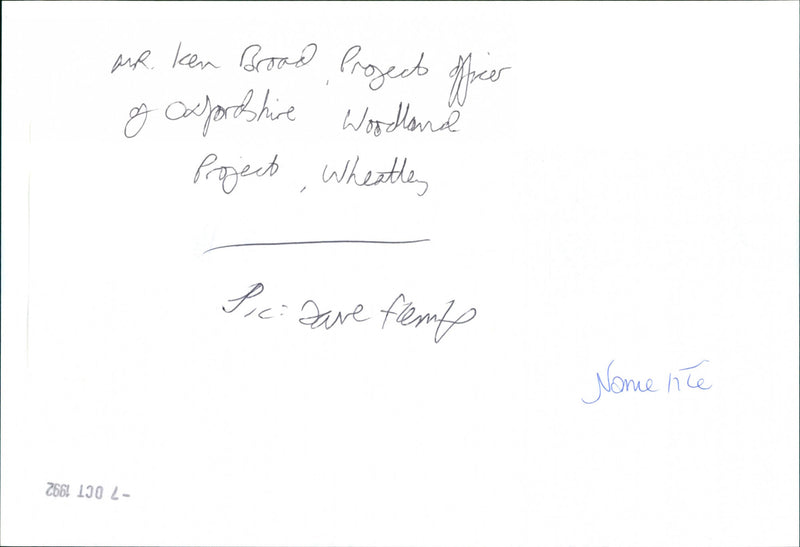 MR. Ken Broad, Project officer
of Oxfordshire Woodland
Project, Wheatley
Pic: Dave
-7 OCT 1992